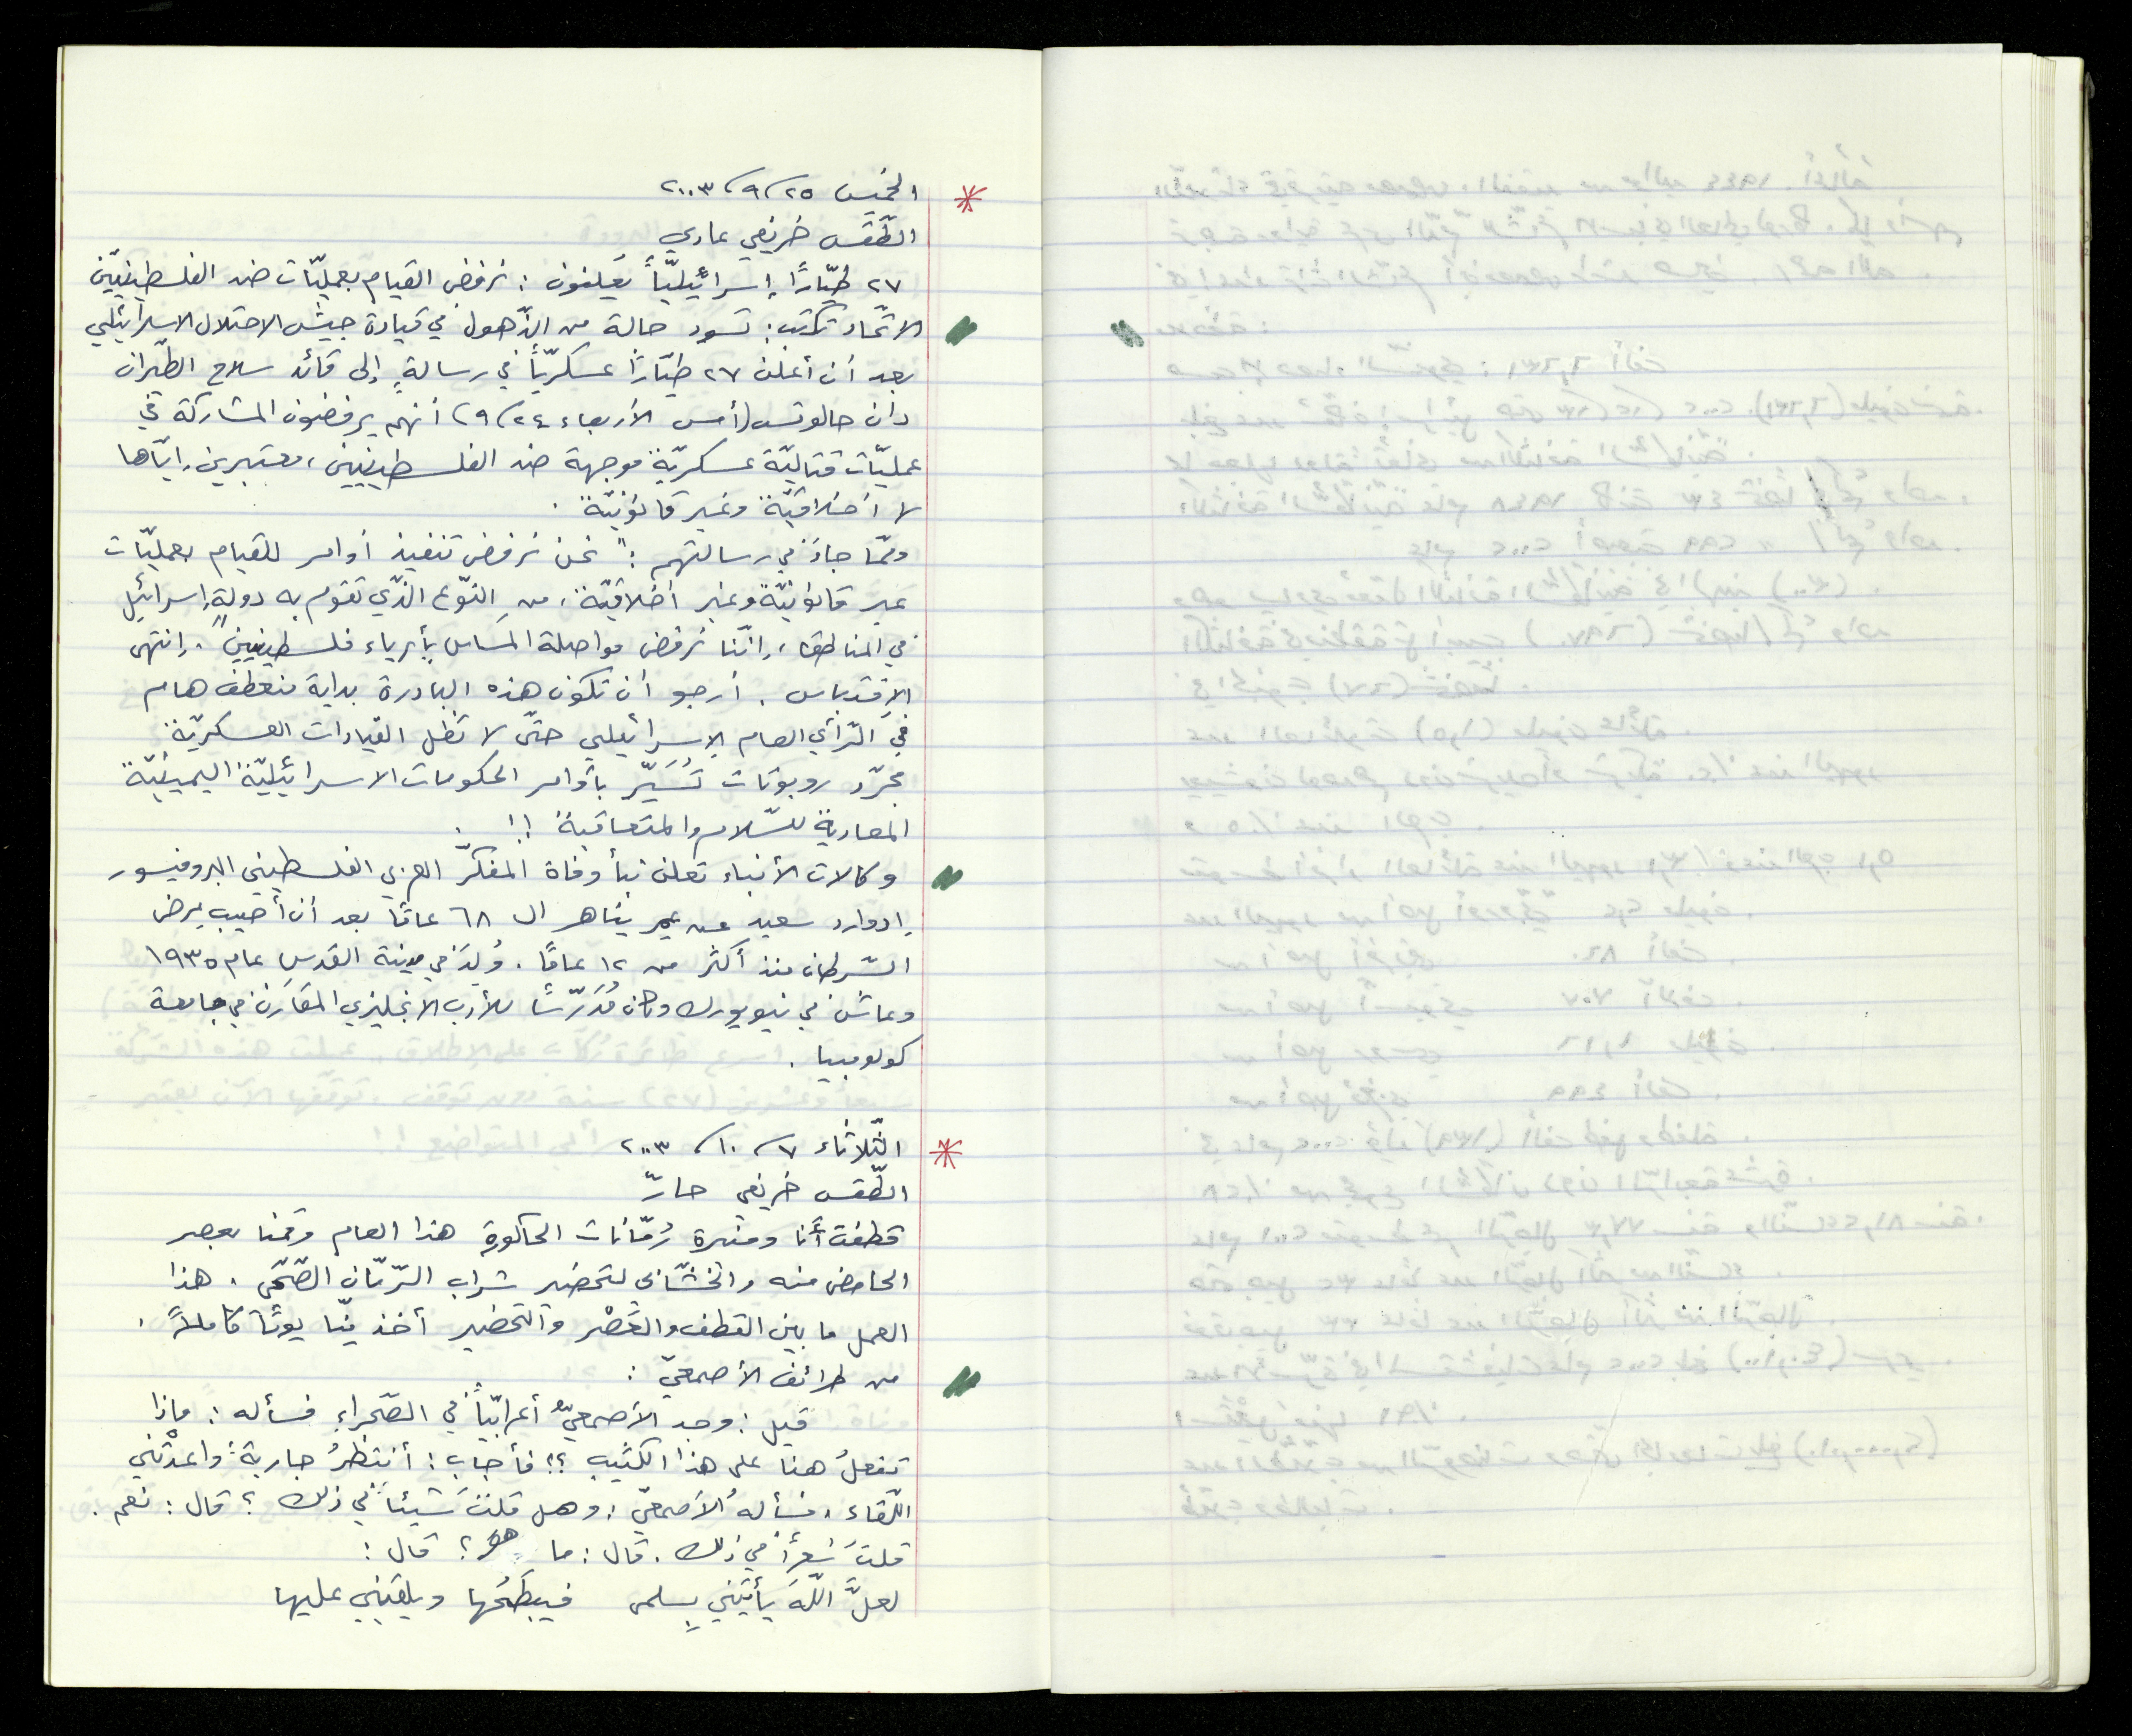 الخميس ٢٥/٩/٢٠٠٣
الطّقس خريفي عادي
٢٧ طيّارًا إسرائيليّاً يعلنون: نرفض القيام بعمليّات ضد الفلسطينيّين
الاتّحاد تكتب: تسود حالة من الذّهول في قيادة جيش الاحتلال الاسرائيلي
بعد أن أعلن ٢٧ طيّارًا عسكريّاً في رسالةٍ إلى قائد سلاح الطّيران
دان حالوتس (أمس الأربعاء ٢٤/٩) أنهم يرفضون المشاركة في
عمليّات قتاليّة عسكريّة موجهة ضد الفلسطينيين، معتبرين إيّاها
لا أخلاقيّة وغير قانونيّة.
وممّا جاءَ في رسالتهم: "نحن نرفض تنفيذ أوامر للقيام بعمليّات
غير قانونيّة وغير أخلاقيّة، من النّوع الذّي تقوم به دولة إسرائيل
في المناطق، إنّنا نرفض مواصلة المساس بأبرياء فلسطينيين". إنتهى
الإقتباس. أرجو أن تكون هذه البادرة بداية منعطف هام
في الرّأي العام الإسرائيلي حتّى لا تظل القيادات العسكريّة
مجرّد روبوتات تُسَيَّر بأوامر الحكومات الاسرائيليّة اليمينيّة
المعادية للسّلام والمتعاقبة!!.
وكالات الأنباء تعلن نبأ وفاة المفكّر العربي الفلسطيني البروفيسور
إدوارد سعيد عن عمر يناهر ال ٦٨ عامًا بعد أن أصيب بمرض
السّرطان منذ أكثر من ١٢ عامًا. وُلِدَ في مدينة القدس عام ١٩٣٥
وعاشَ في نيويورك وكان مُدَرّسًا للأدب الانجليزي المقارَن في جامعة
كولومبيا.
الثّلاثاء ٧/١٠/٢٠٠٣
الطّقس خريفي حارّ
قطفت أنا ومنيرة رُمّانات الحاكورةِ هذا العام وقمنا بعصر
الحامض منه والخشّابي لتحضير شراب الرّمّان الصّحّي. هذا
العمل ما بين القطف والعَصْر والتّحضير أخذ منّا يومًا كاملاً.
من طرائف الأصمعيّ:
قيل: وجد الأصمعيُّ أعرابيّاً في الصّحراءِ فسأله: ماذا
تفعلُ هنا على هذا الكثيب؟! فأجاب: أنتظرُ جاريةً واعدْتني
اللّقاء، فسألهُ الأصمعيّ: وهل قلتَ شيئاً في ذلك؟ قال: نعم.
قلتُ شعرأً في ذلك. قال: ما هو؟ قال:
لعلَّ اللّهَ يأتيني بِسلمى فيبطَحُها ويلقيني عليها